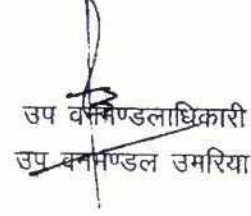 उप वनमण्डलाधिकारी
उप वनमण्डल उमरिया